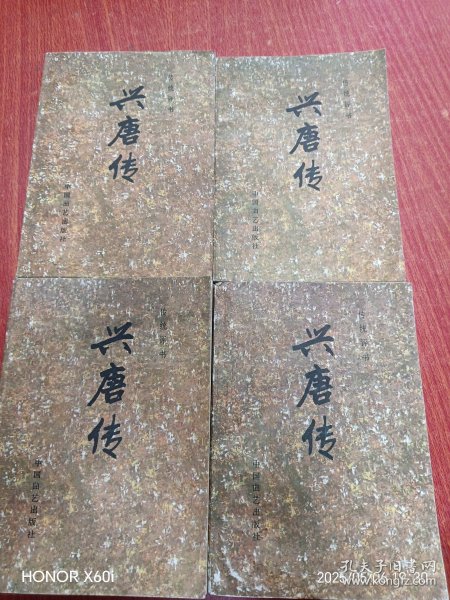 传统评书
兴唐传
中国曲艺出版社
传统评书
兴唐传
中国曲艺出版社
传统评书
兴唐传
中国曲艺出版社
传统评书
兴唐传
中国曲艺出版社
HONOR X60i
孔夫子旧书网
www.kongfz.com